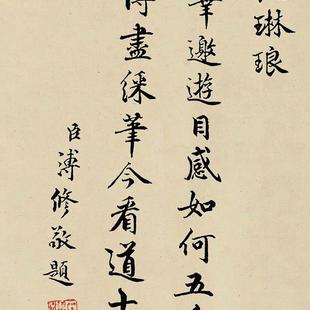 琳琅
華邀遊目感如何五
盡綵筆今看道
臣溥修敬題